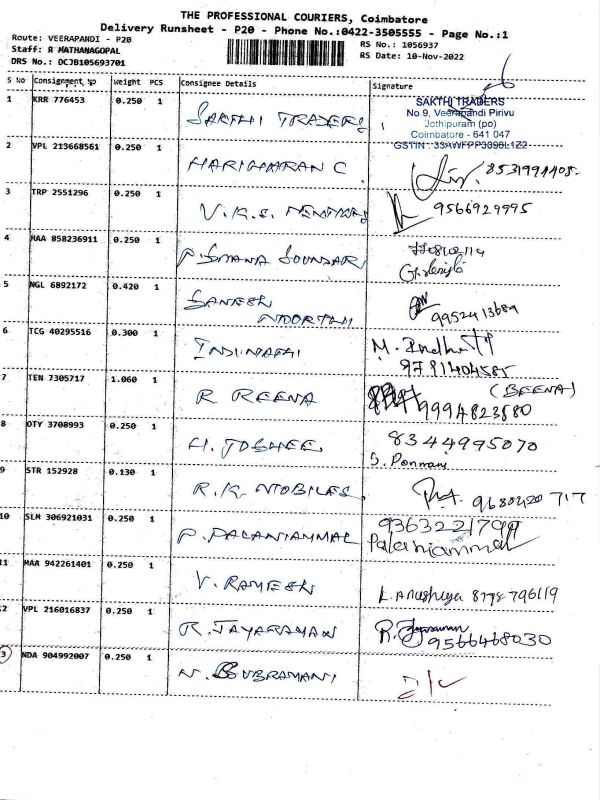 THE PROFESSIONAL COURIERS, Coimbatore
Delivery Runsheet - P20 - Phone No.:0422-3505555 - Page No.:1
Route: VEERAPANDI - P20
RS No.: 1056937
Staff: R MATHANAGOPAL
RS Date: 10-Nov-2022
DRS No.: DCJB105693701
S No Consignment No Weight PCS Consignee Details Signature
1 KRR 776453 0.250 1 SAKTHI TRADERS
SAKTHI TRADERS
No.9, Veerapandi Pirivu
Jothipuram (po)
Coimbatore - 641 047
2 VPL 213668561 0.250 1 HARIHARAN C. 8531994405
3 TRP 2551296 0.250 1 V.K.S. 9566929995
4 MAA 858236911 0.250 1
5 NGL 6892172 0.420 1 GANESH MOORTHI 9952413689
6 TCG 40295516 0.300 1 INDUMATHI M. Indhumathi
9791404585
7 TEN 7305717 1.060 1 R REENA (BEENA)
9994823880
8 OTY 3708993 0.250 1 H. JOSHEE 8344995070
S. Ponmani
9 STR 152928 0.130 1 R.K. MOBILES
10 SLM 306921031 0.250 1 P. PALANIAMMAL
Palaniammal
11 MAA 942261401 0.250 1 V. RAMESH L. Anushiya 8778796119
12 VPL 216016837 0.250 1 R. JAYARAMAN R. Jayaraman
9566468030
13 NDA 904992007 0.250 1 N. SUBRAMANI